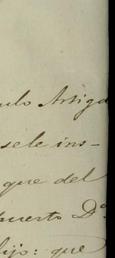 ulo Artiga
sele ins-
que del
puerto Dⁿ
lijo: que